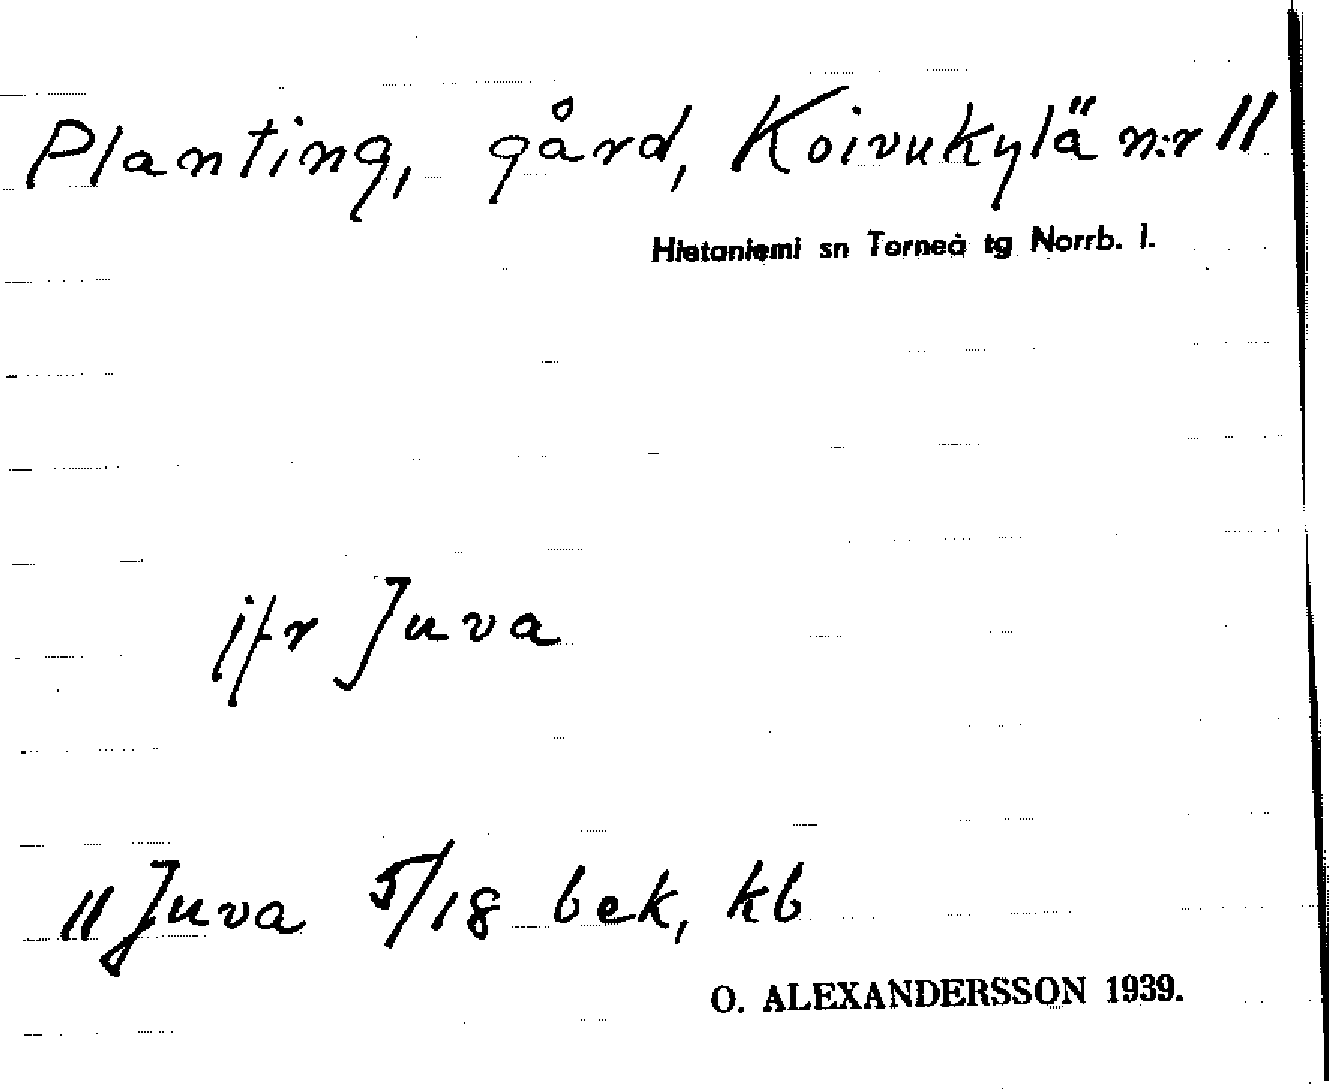 Planting, gård, Koivukylä n:r 11
Hietaniemi sn Torneå tg Norrb. l.
jfr Juva
11 Juva 5/18 bek, kb
O. ALEXANDERSSON 1939.